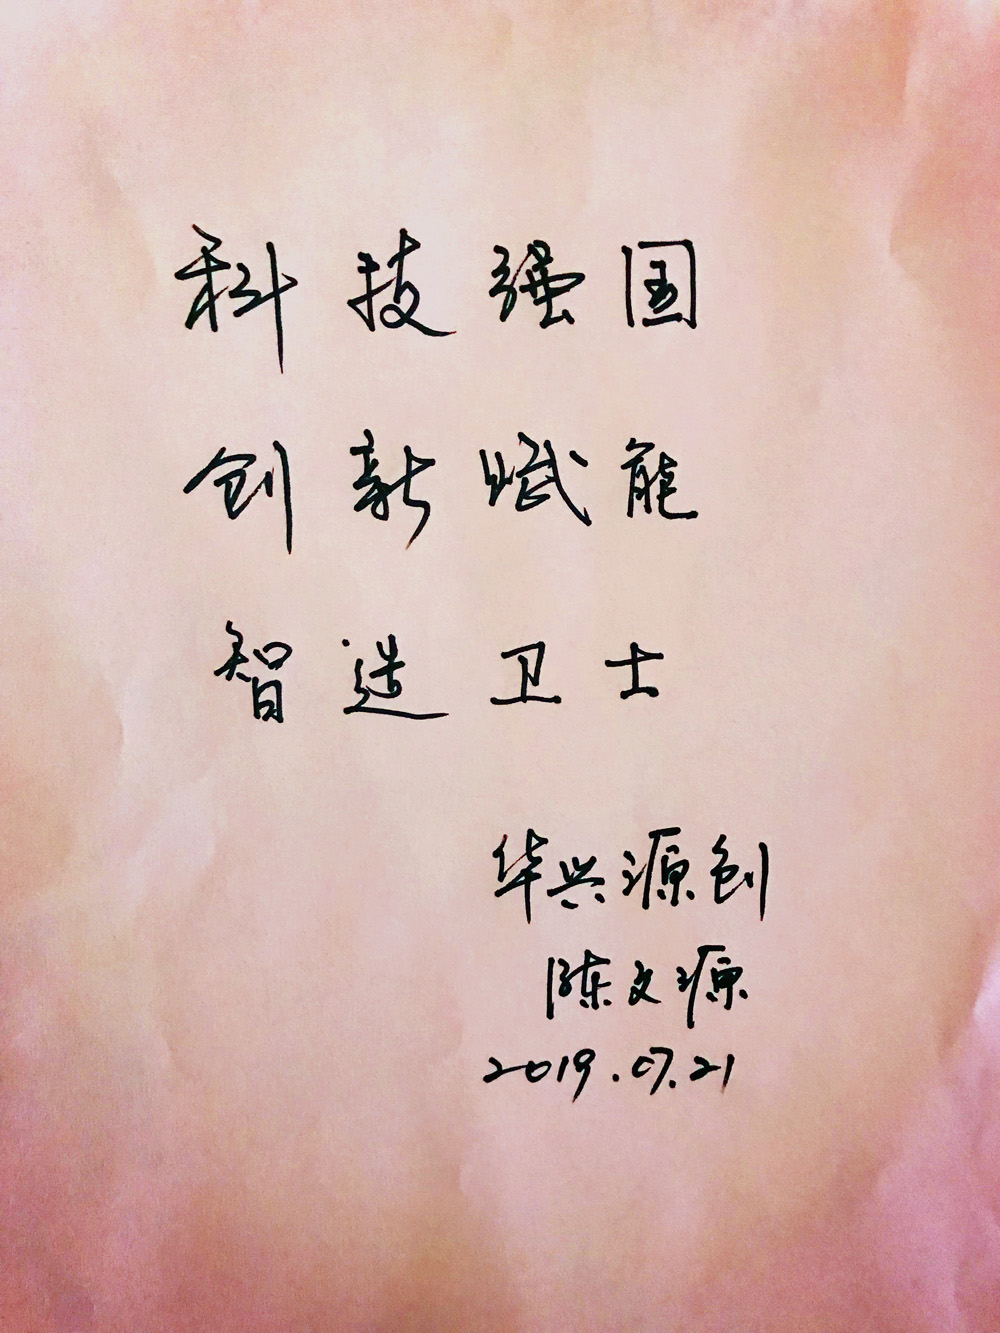 科技强国
创新赋能
智造卫士
华兴源创
陈文源
2019.07.21